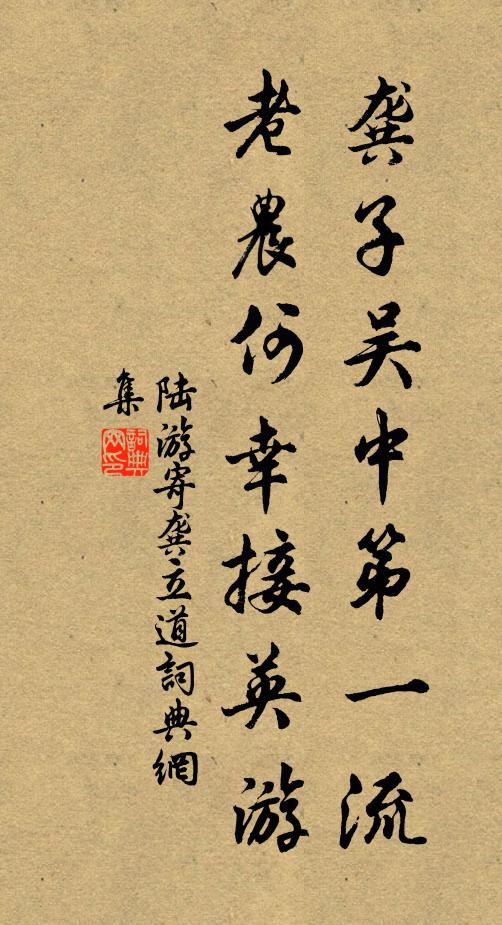 龚子吴中第一流
老農何幸接英游
陆游寄龚立道詞典網
集
詞典
网印